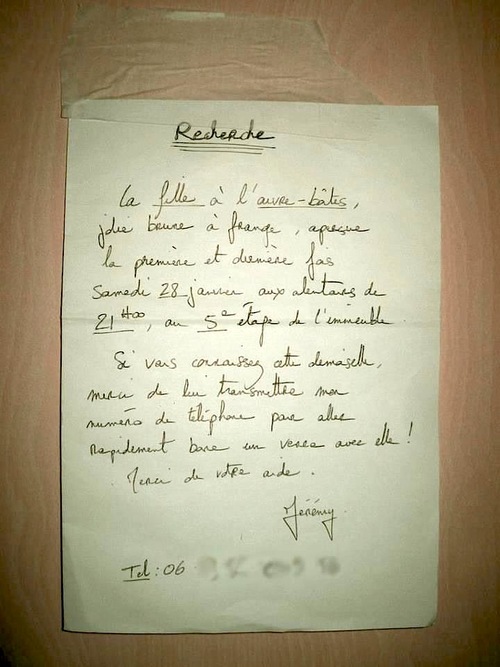 Recherche
La fille à l'ouvre-boîtes,
jolie brune à frange, aperçue
la première et dernière fois
Samedi 28 janvier aux alentours de
21H00, au 5e étage de l'immeuble.
Si vous connaissez cette demoiselle,
merci de lui transmettre mon
numéro de téléphone pour aller
rapidement boire un verre avec elle !
Merci de votre aide.
Jérémy
Tel : 06